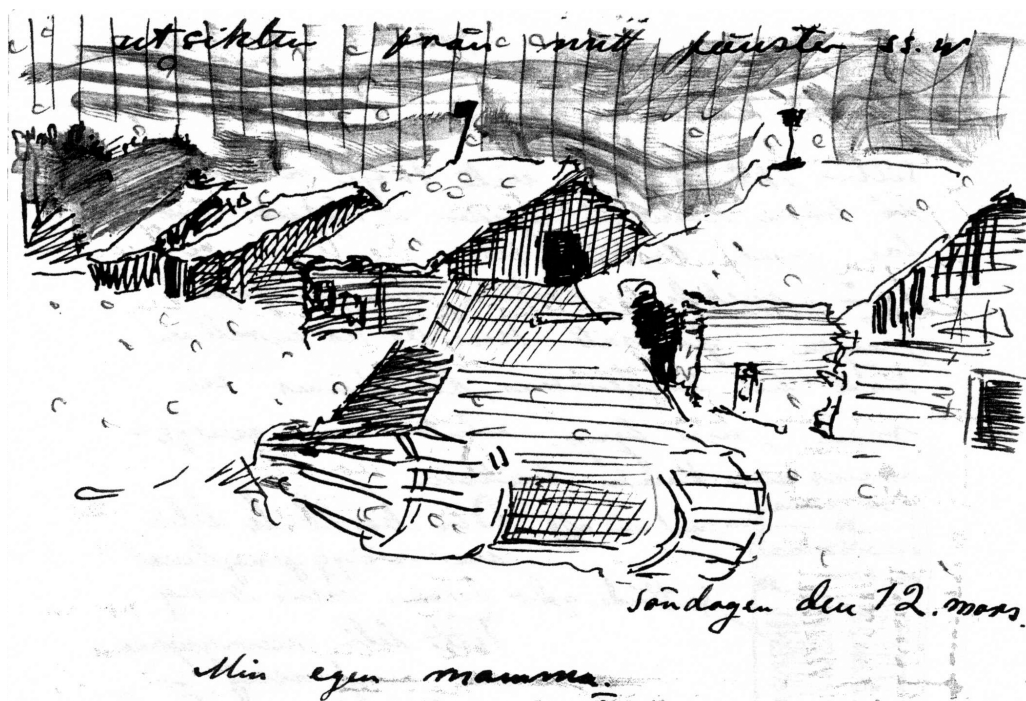 utsikten från mitt fönster ss.w
Söndagen den 12. mars.
Min egen mamma.